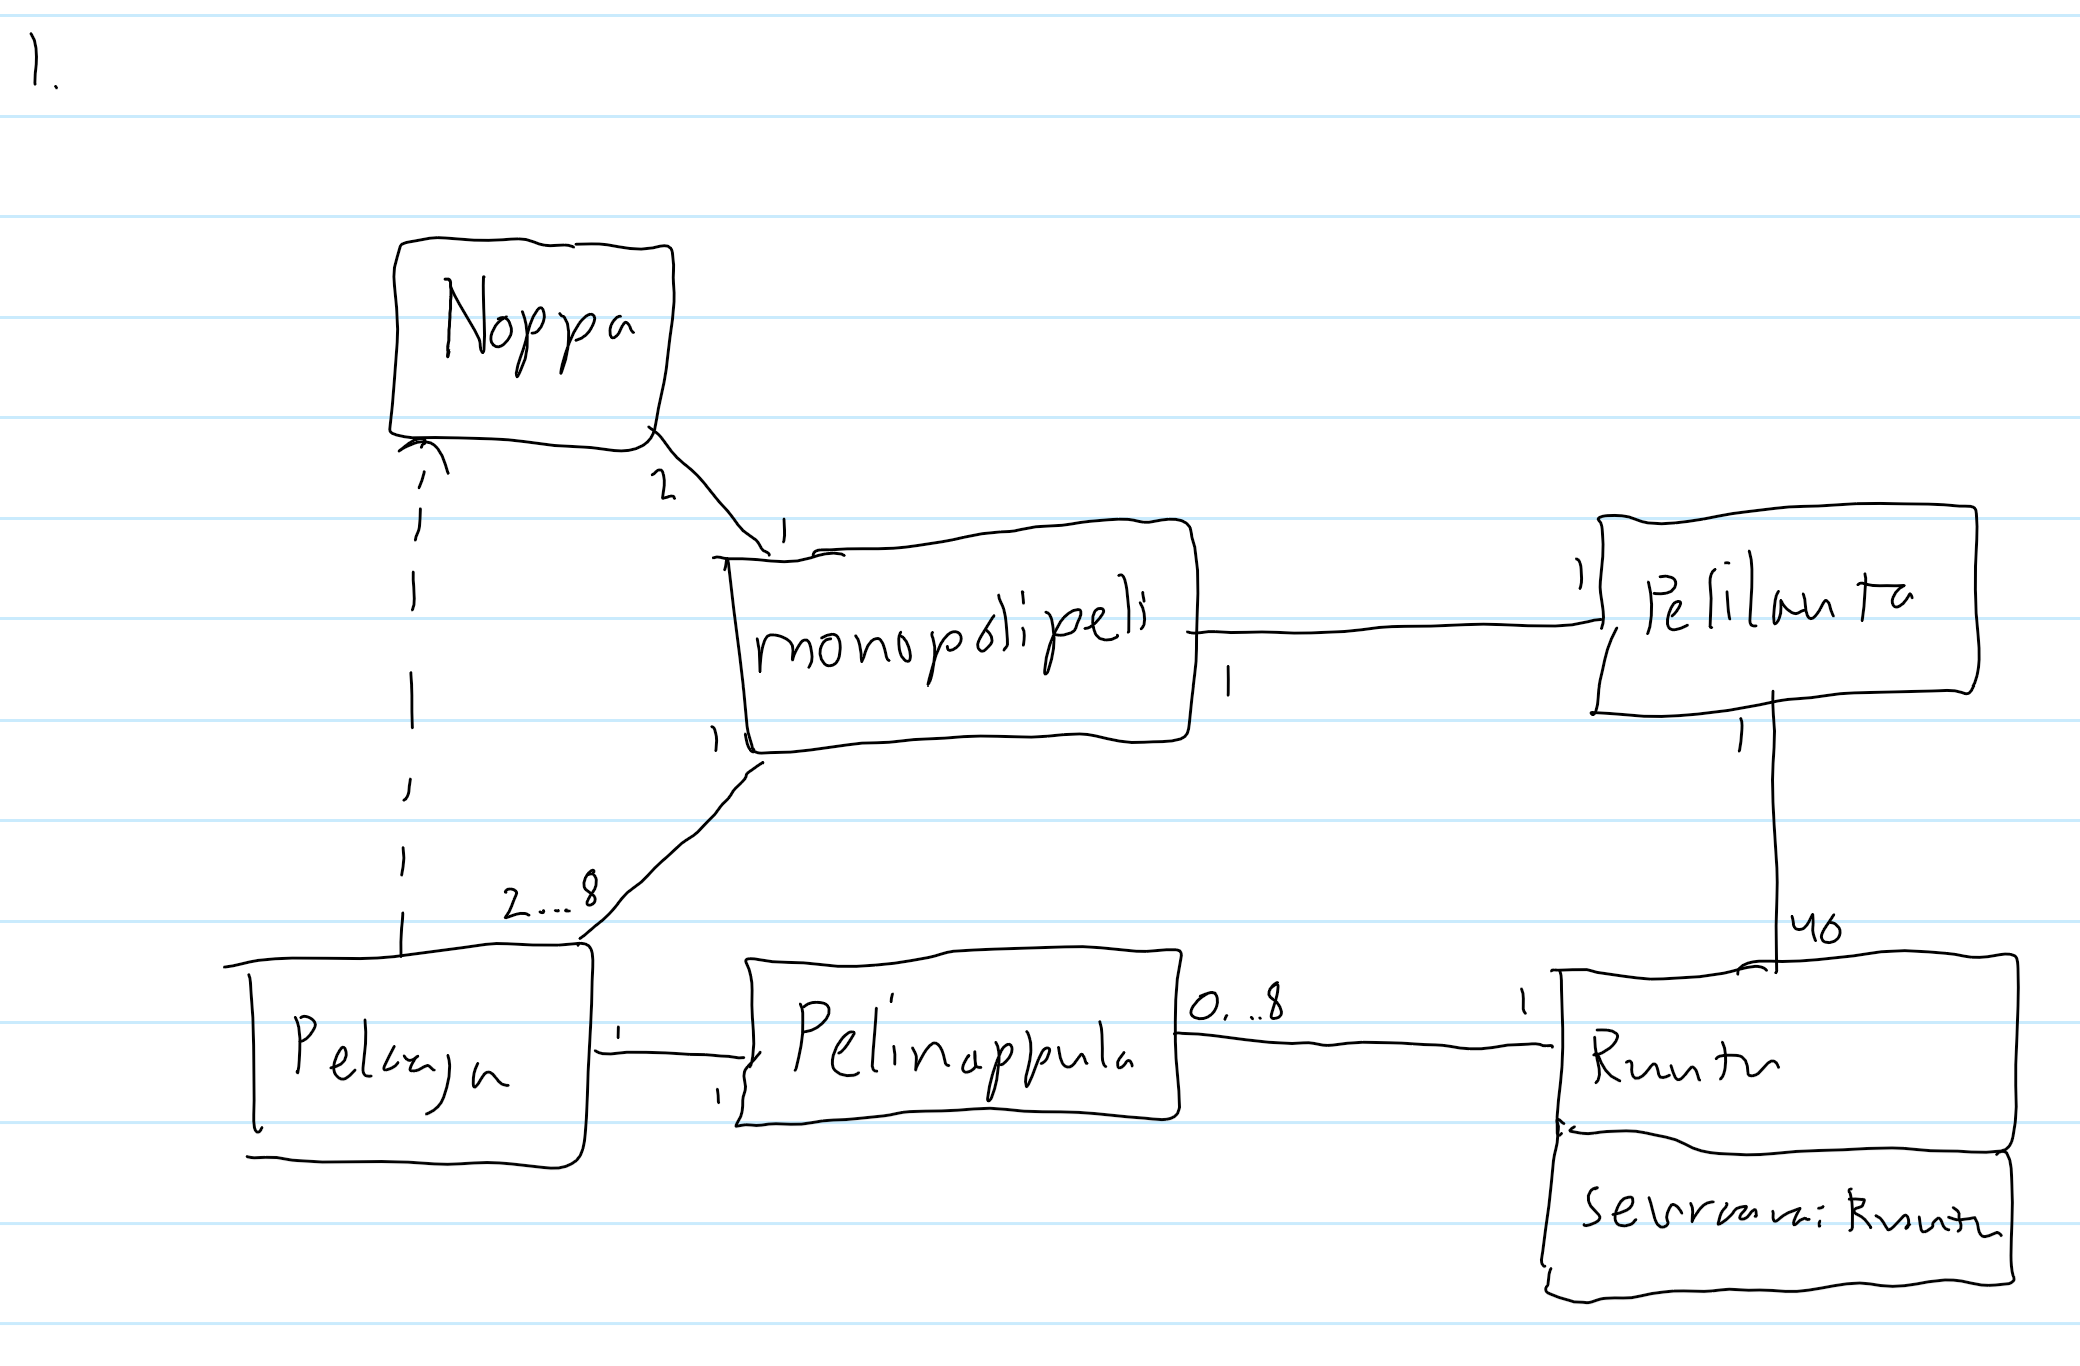 1.
Noppa
2
1
monopolipeli
1
1
Pelilauta
1
1
2...8
40
Pelaaja
1
1
Pelinappula
0...8
1
Ruutu
seuraava: Ruutu